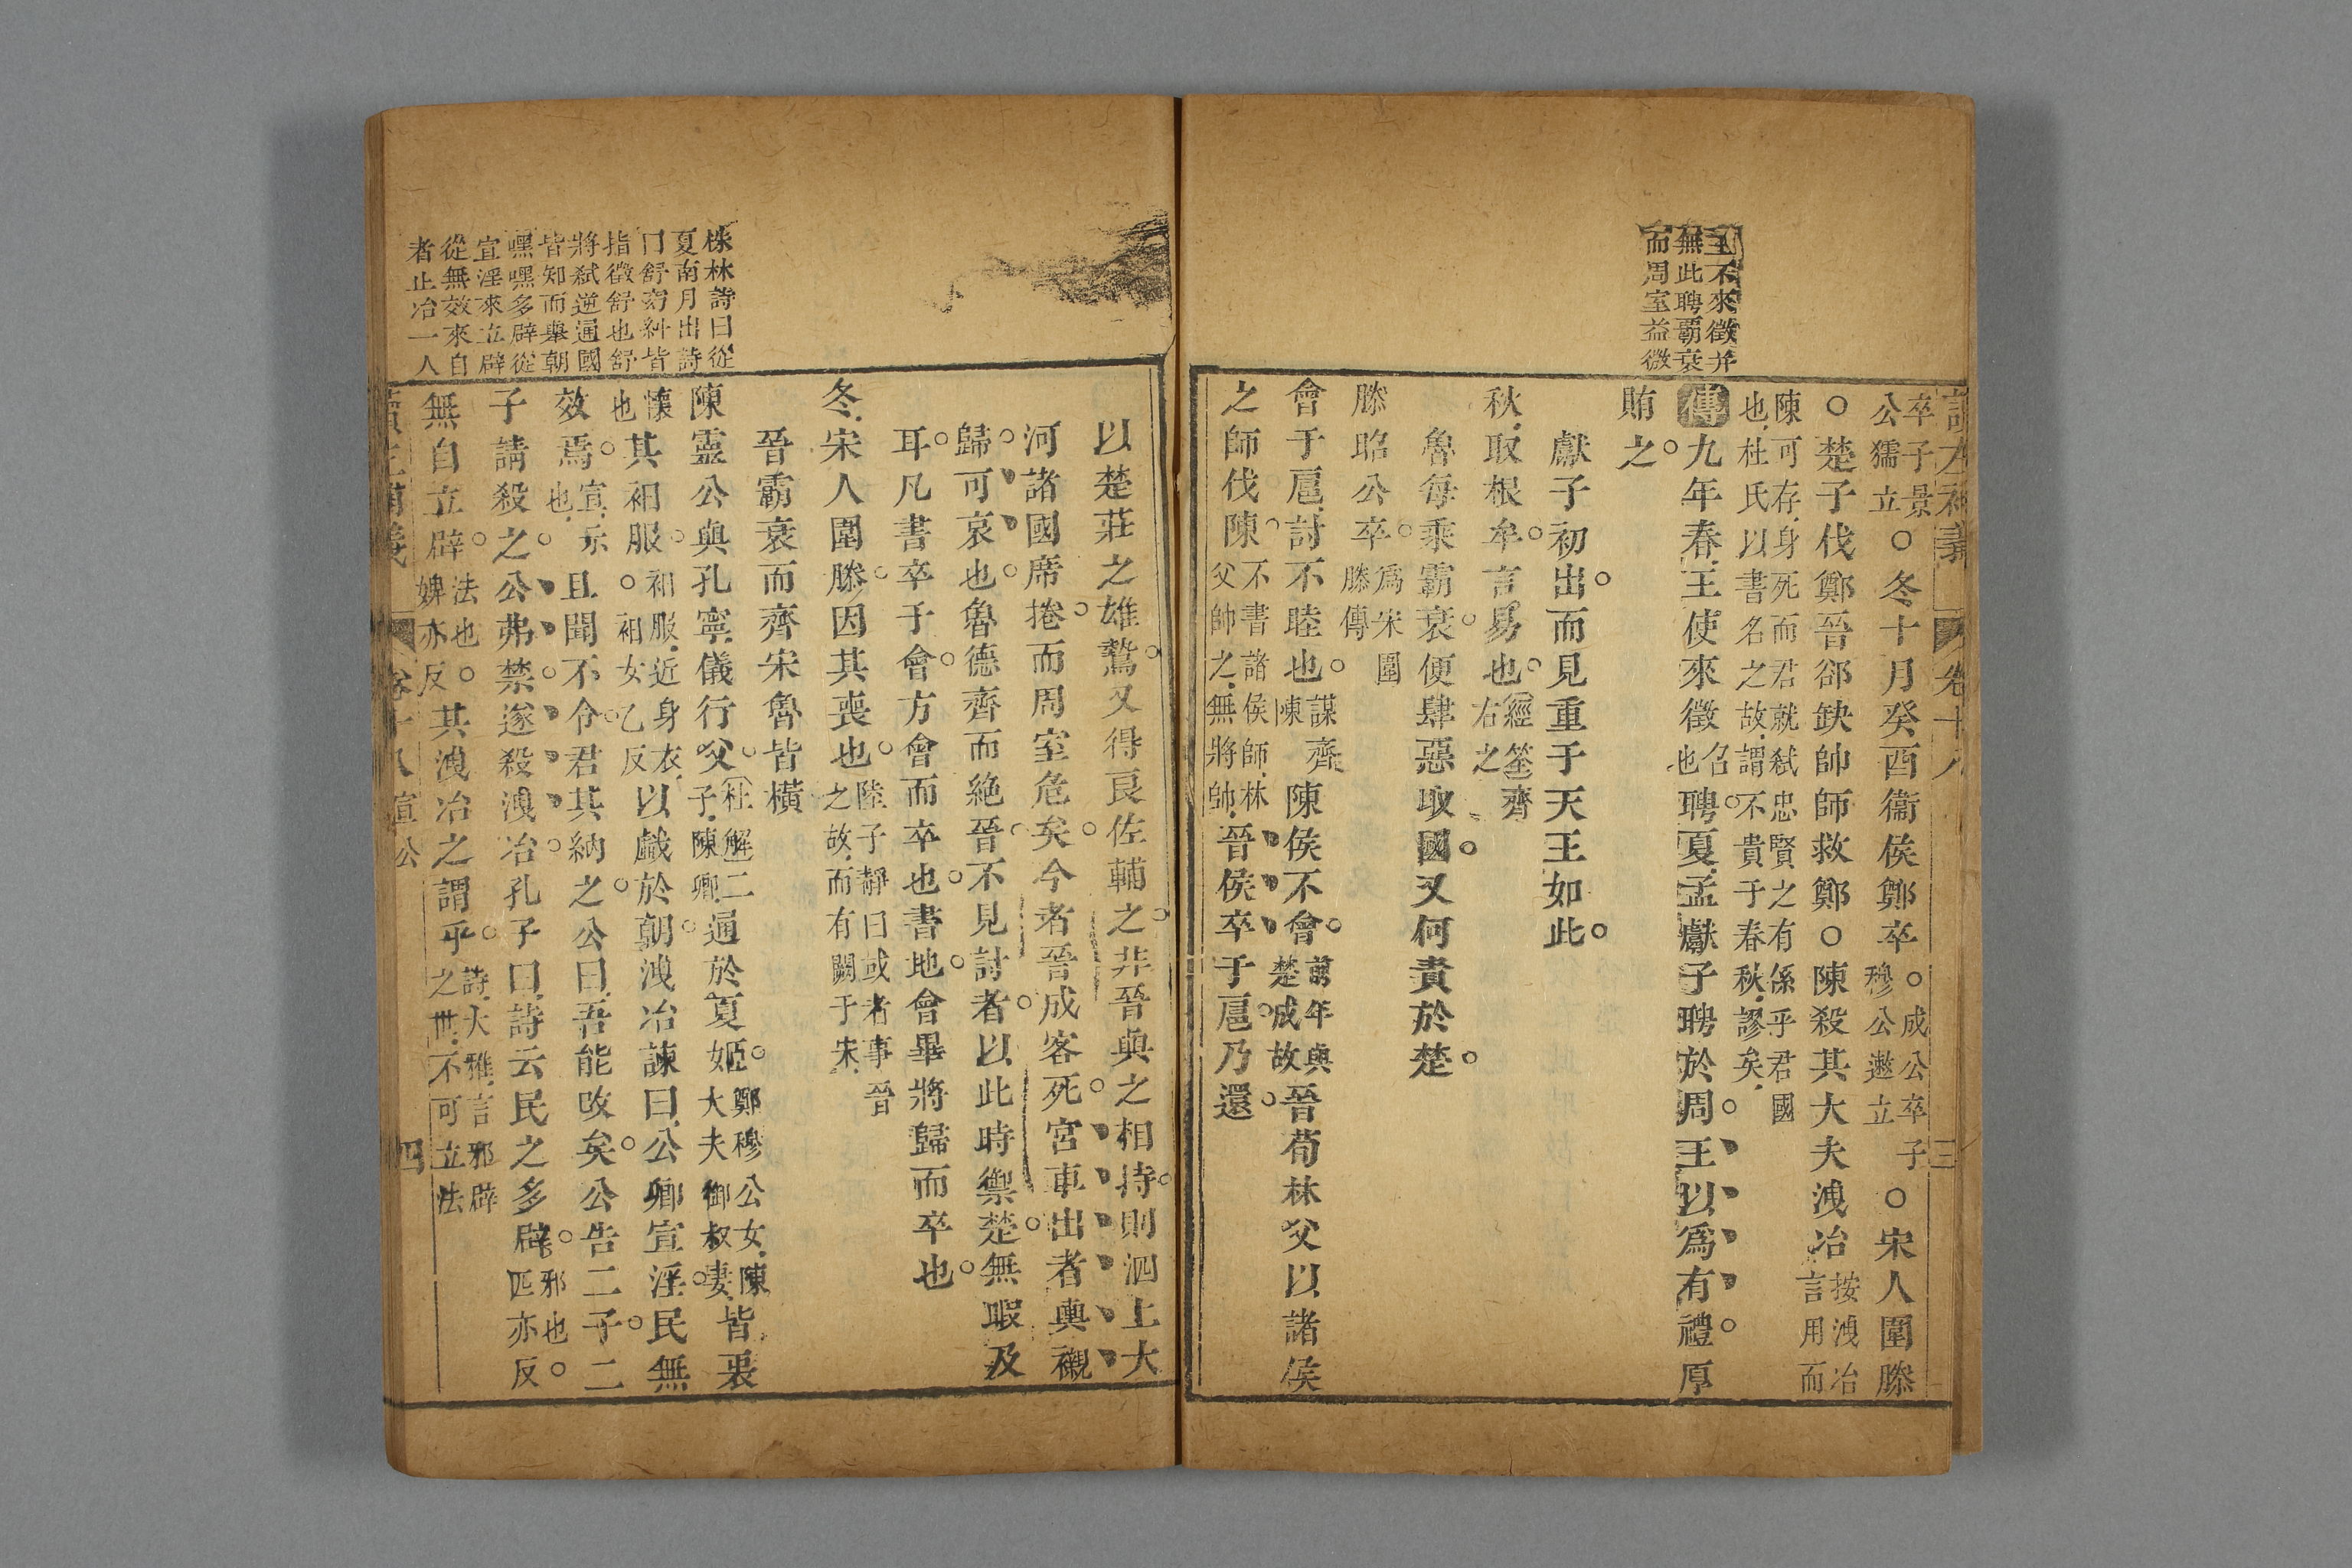 王不來徵并
無此聘霸衰
而周室益微
讀左補義 卷十八 三
卒子景公獳立○冬十月癸酉衞侯鄭卒○成公卒子穆公遬立○宋人圍滕
○楚子伐鄭晉郤缺帥師救鄭○陳殺其大夫洩冶按洩冶言用而
陳可存身死而君就弒忠賢之有係乎君國也杜氏以書名之故謂不貴于春秋謬矣
傳九年春王使來徵聘召也夏孟獻子聘於周王以爲有禮厚
賄之
獻子初出而見重于天王如此
秋取根牟言易也經筌齊右之
魯每乘霸衰便肆惡取國又何責於楚
滕昭公卒爲宋圍滕傳
會于扈討不睦也謀齊陳陳侯不會前年與楚成故晉荀林父以諸侯
之師伐陳不書諸侯師林父帥之無將帥晉侯卒于扈乃還
以楚莊之雄鷙又得良佐輔之非晉與之相持則泗上大
河諸國席捲而周室危矣今者晉成客死宮車出者輿櫬
歸可哀也魯德齊而絶晉不見討者以此時禦楚無暇及
耳凡書卒于會方會而卒也書地會畢將歸而卒也
冬宋人圍滕因其喪也陸子靜曰或者事晉之故而有闕于宋
晉霸衰而齊宋魯皆橫
株林詩曰從
夏南月出詩
曰舒窈糾皆
指徵舒也舒
將弒逆通國
皆知而舉朝
嘿嘿多辟從
宣淫來立辟
從無效來自
者止冶一人
陳靈公與孔寧儀行父杜解二子陳卿通於夏姬鄭穆公女陳大夫御叔妻皆衷
懷也其衵服衵服近身衣○衵女乙反以戲於朝洩冶諫曰公卿宣淫民無
效焉宣示也且聞不令君其納之公曰吾能改矣公告二子二
子請殺之公弗禁遂殺洩冶孔子曰詩云民之多辟辟邪也○匹亦反
無自立辟法也○婢亦反其洩冶之謂乎詩大雅言邪辟之世不可立法
讀左補義 卷十八 宣公 四